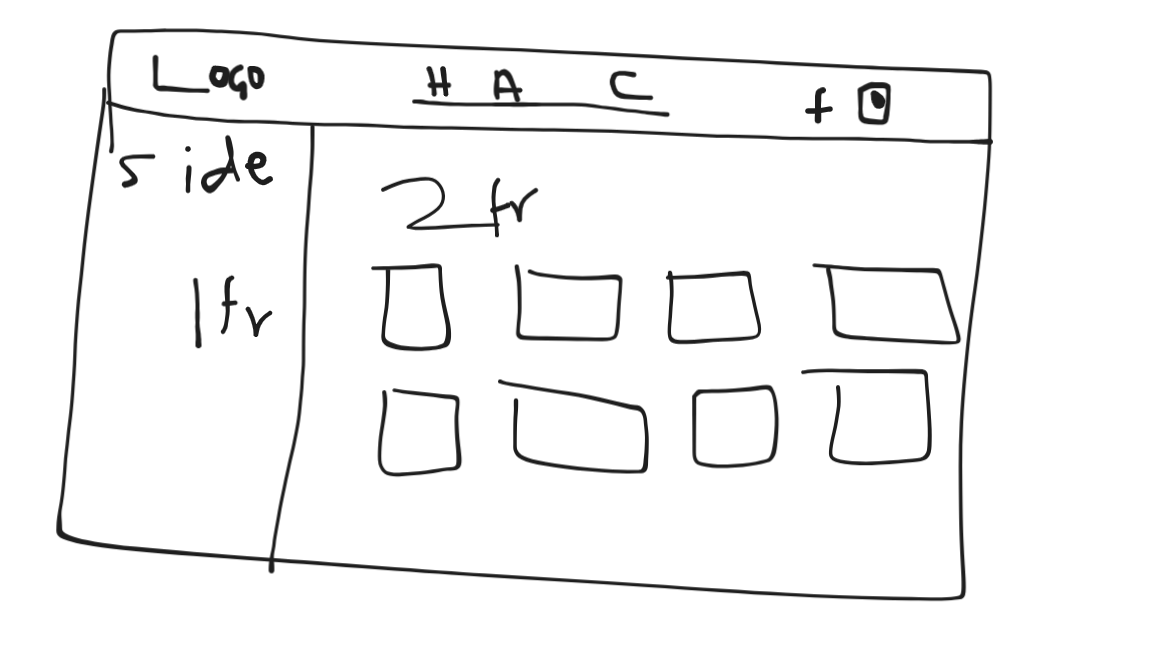 Logo H A C f
side
2fr
1fr